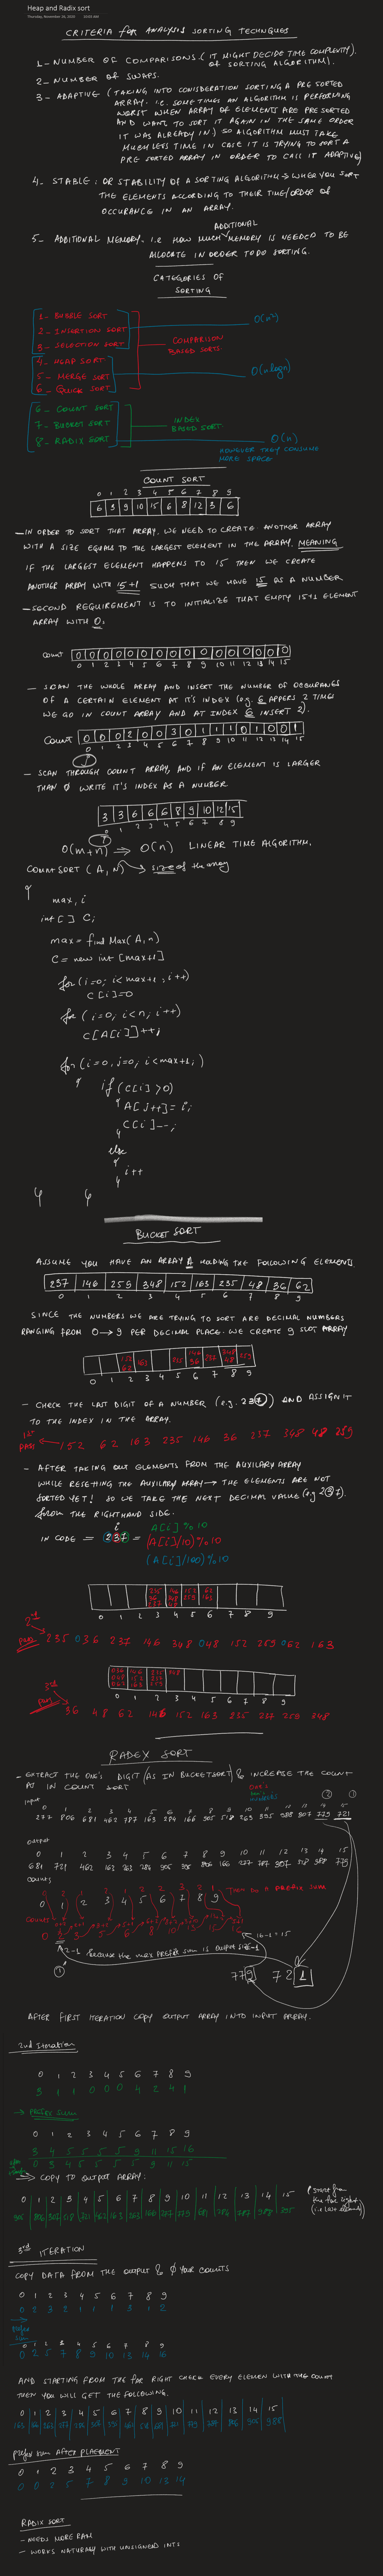 Heap and Radix sort
Thursday, November 26, 2020 10:03 AM
CRITERIA for ANALYSIS SORTING TECHNIQUES
1- NUMBER OF COMPARISONS. ( IT MIGHT DECIDE TIME COMPLEXITY).
OF SORTING ALGORITHM).
2- NUMBER OF SWAPS.
3- ADAPTIVE (TAKING INTO CONSIDERATION SORTING A PRE SORTED
ARRAY. i.e. SOME TIMES AN ALGORITHM IS PERFORMING
WORST WHEN ARRAY OF ELEMENTS ARE PRE SORTED
AND WANT TO SORT IT AGAIN IN THE SAME ORDER
IT WAS ALREADY IN) SO ALGORITHM MUST TAKE
MUCH LESS TIME IN CASE IT IS TRYING TO SORT A
PRE SORTED ARRAY IN ORDER TO CALL IT ADAPTIVE)
4- STABLE: OR STABILITY OF A SORTING ALGORITHM → WHEN YOU SORT
THE ELEMENTS ACCORDING TO THEIR TIME/ORDER OF
OCCURANCE IN AN ARRAY.
ADDITIONAL
5- ADDITIONAL MEMORY. i.e HOW MUCH MEMORY IS NEEDED TO BE
ALLOCATE IN ORDER TO DO SORTING.
CATEGORIES OF
SORTING
1- BUBBLE SORT
2- INSERTION SORT
3- SELECTION SORT
O(n²)
4- HEAP SORT
5- MERGE SORT
6- QUICK SORT
COMPARISON
BASED SORTS
O(n logn)
6- COUNT SORT
7- BUCKET SORT
8- RADIX SORT
INDEX
BASED SORT
O(n)
HOWEVER THEY CONSUME
MORE SPACE
COUNT SORT
0 1 2 3 4 5 6 7 8 9
6 3 9 10 15 6 8 12 3 6
- IN ORDER TO SORT THAT ARRAY. WE NEED TO CREATE ANOTHER ARRAY
WITH A SIZE EQUALS TO THE LARGEST ELEMENT IN THE ARRAY. MEANING
IF THE LARGEST ELEMENT HAPPENS TO 15 THEN WE CREATE
ANOTHER ARRAY WITH 15+1 SUCH THAT WE HAVE 15 AS A NUMBER
- SECOND REQUIREMENT IS TO INITIALIZE THAT EMPTY 15+1 ELEMENT
ARRAY WITH 0.
Count 0 0 0 0 0 0 0 0 0 0 0 0 0 0 0 0
0 1 2 3 4 5 6 7 8 9 10 11 12 13 14 15
- SCAN THE WHOLE ARRAY AND INSERT THE NUMBER OF OCCURANCES
OF A CERTAIN ELEMENT AT IT'S INDEX (e.g. 6 APPERS 2 TIMES
WE GO IN COUNT ARRAY AND AT INDEX 6 INSERT 2).
Count 0 0 0 2 0 0 3 0 1 1 1 0 1 0 0 1
0 1 2 3 4 5 6 7 8 9 10 11 12 13 14 15
- SCAN THROUGH COUNT ARRAY, AND IF AN ELEMENT IS LARGER
THAN 0 WRITE IT'S INDEX AS A NUMBER
3 3 6 6 6 8 9 10 12 15
0 1 2 3 4 5 6 7 8 9
O(m+n) ⇒ O(n) LINEAR TIME ALGORITHM.
COUNTSORT (A,N) → size of the array
{
max, i
int [] C;
max = find Max(A,n)
C = new int [max+1]
for (i=0; i<max+1; i++)
C[i]=0
for (i=0; i<n; i++)
C[A[i]]++;
for (i=0, j=0; i<max+1;)
{ if (C[i] >0)
{ A[j++] = i;
C[i]--;
}
else
{
i++
}
} }
BUCKET SORT
ASSUME YOU HAVE AN ARRAY A HOLDING THE FOLLOWING ELEMENTS
237 146 259 348 152 163 235 48 36 62
0 1 2 3 4 5 6 7 8 9
SINCE THE NUMBERS WE ARE TRYING TO SORT ARE DECIMAL NUMBERS
RANGING FROM 0→9 PER DECIMAL PLACE. WE CREATE 9 SLOT ARRAY
152 62 163 235 146 36 237 348 48 259
0 1 2 3 4 5 6 7 8 9
- CHECK THE LAST DIGIT OF A NUMBER (e.g. 237) AND ASSIGN IT
TO THE INDEX IN THE ARRAY.
1st PASS 152 62 163 235 146 36 237 348 48 259
- AFTER TAKING OUT ELEMENTS FROM THE AUXILARY ARRAY
WHILE RESETTING THE AUXILARY ARRAY → THE ELEMENTS ARE NOT
SORTED YET! SO WE TAKE THE NEXT DECIMAL VALUE (e.g 237).
from THE RIGHTHAND SIDE.
i A[i] %10
IN CODE = 237 = (A[i]/10)%10
(A[i]/100)%10
235 36 237 146 348 48 152 259 62 163
0 1 2 3 4 5 6 7 8 9
2nd PASS 235 036 237 146 348 048 152 259 062 163
036 048 062 146 152 163 235 237 259 348
0 1 2 3 4 5 6 7 8 9
3rd PASS 36 48 62 146 152 163 235 237 259 348
RADEX SORT
- EXTRACT THE ONE'S DIGIT (AS IN BUCKETSORT) & INCREASE THE COUNT
AS IN COUNT SORT
input
output
0 1 2 3 4 5 6 7 8 9 10 11 12 13 14 15
Counts
0 1 2 3 4 5 6 7 8 9
THEN DO A PREFIX SUM
16-1=15
2-1 because the max prefix sum is output size-1
779 721
AFTER FIRST ITERATION COPY OUTPUT ARRAY INTO INPUT ARRAY.
2nd Iteration
0 1 2 3 4 5 6 7 8 9
3 1 1 0 0 0 4 2 4 1
→ PREFIX SUM
0 1 2 3 4 5 6 7 8 9
3 4 5 5 5 5 9 11 15 16
0 3 4 5 5 5 5 9 11 15
→ COPY TO OUTPUT ARRAY:
0 1 2 3 4 5 6 7 8 9 10 11 12 13 14 15
(Start from
the far right
(i.e last element)
3rd ITERATION
COPY DATA FROM THE OUTPUT & 0 YOUR COUNTS
0 1 2 3 4 5 6 7 8 9
0 2 3 2 1 1 1 3 1 2
Prefix sum
0 1 2 3 4 5 6 7 8 9
0 2 5 7 8 9 10 13 14 16
AND STARTING FROM THE FAR RIGHT CHECK EVERY ELEMEN WITH THE COUNT
THEN YOU WILL GET THE FOLLOWING.
0 1 2 3 4 5 6 7 8 9 10 11 12 13 14 15
prefix sum AFTER PLAEMENT
0 1 2 3 4 5 6 7 8 9
0 0 2 5 7 8 9 10 13 14
RADIX SORT
- NEEDS MORE RAM
- WORKS NATURALY WITH UNSIGNED INTS